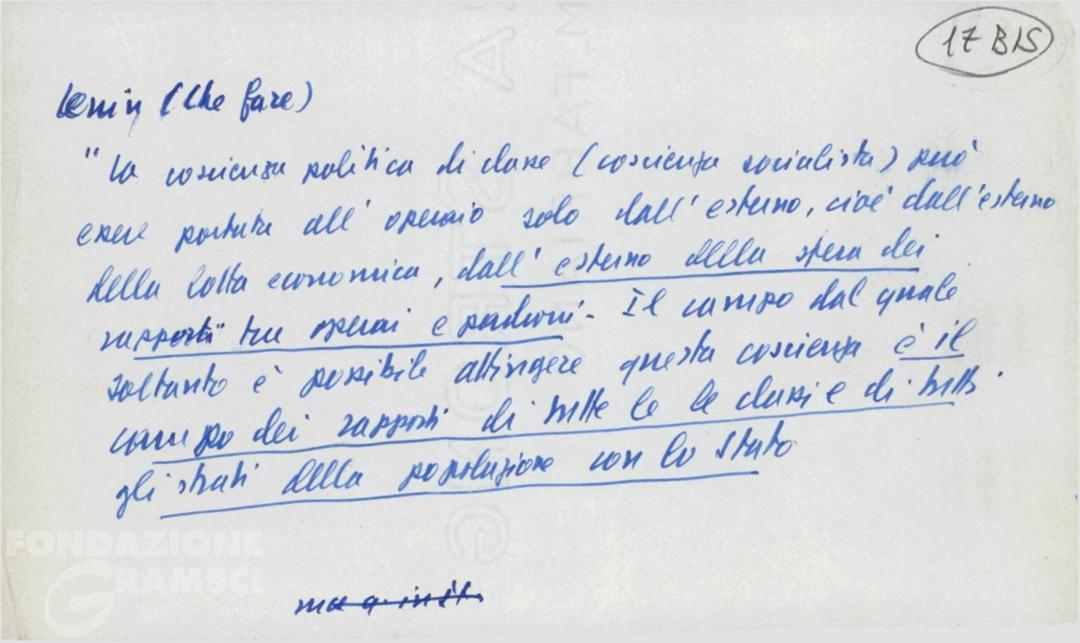 17 BIS
Lenin (Che fare)
"La coscienza politica di classe (coscienza socialista) può
essere portata all'operaio solo dall'esterno, cioè dall'esterno
della lotta economica, dall'esterno della sfera dei
rapporti tra operai e padroni. Il campo dal quale
soltanto è possibile attingere questa coscienza è il
campo dei rapporti di tutte le le classi e di tutti
gli strati della popolazione con lo Stato
FONDAZIONE
GRAMSCI